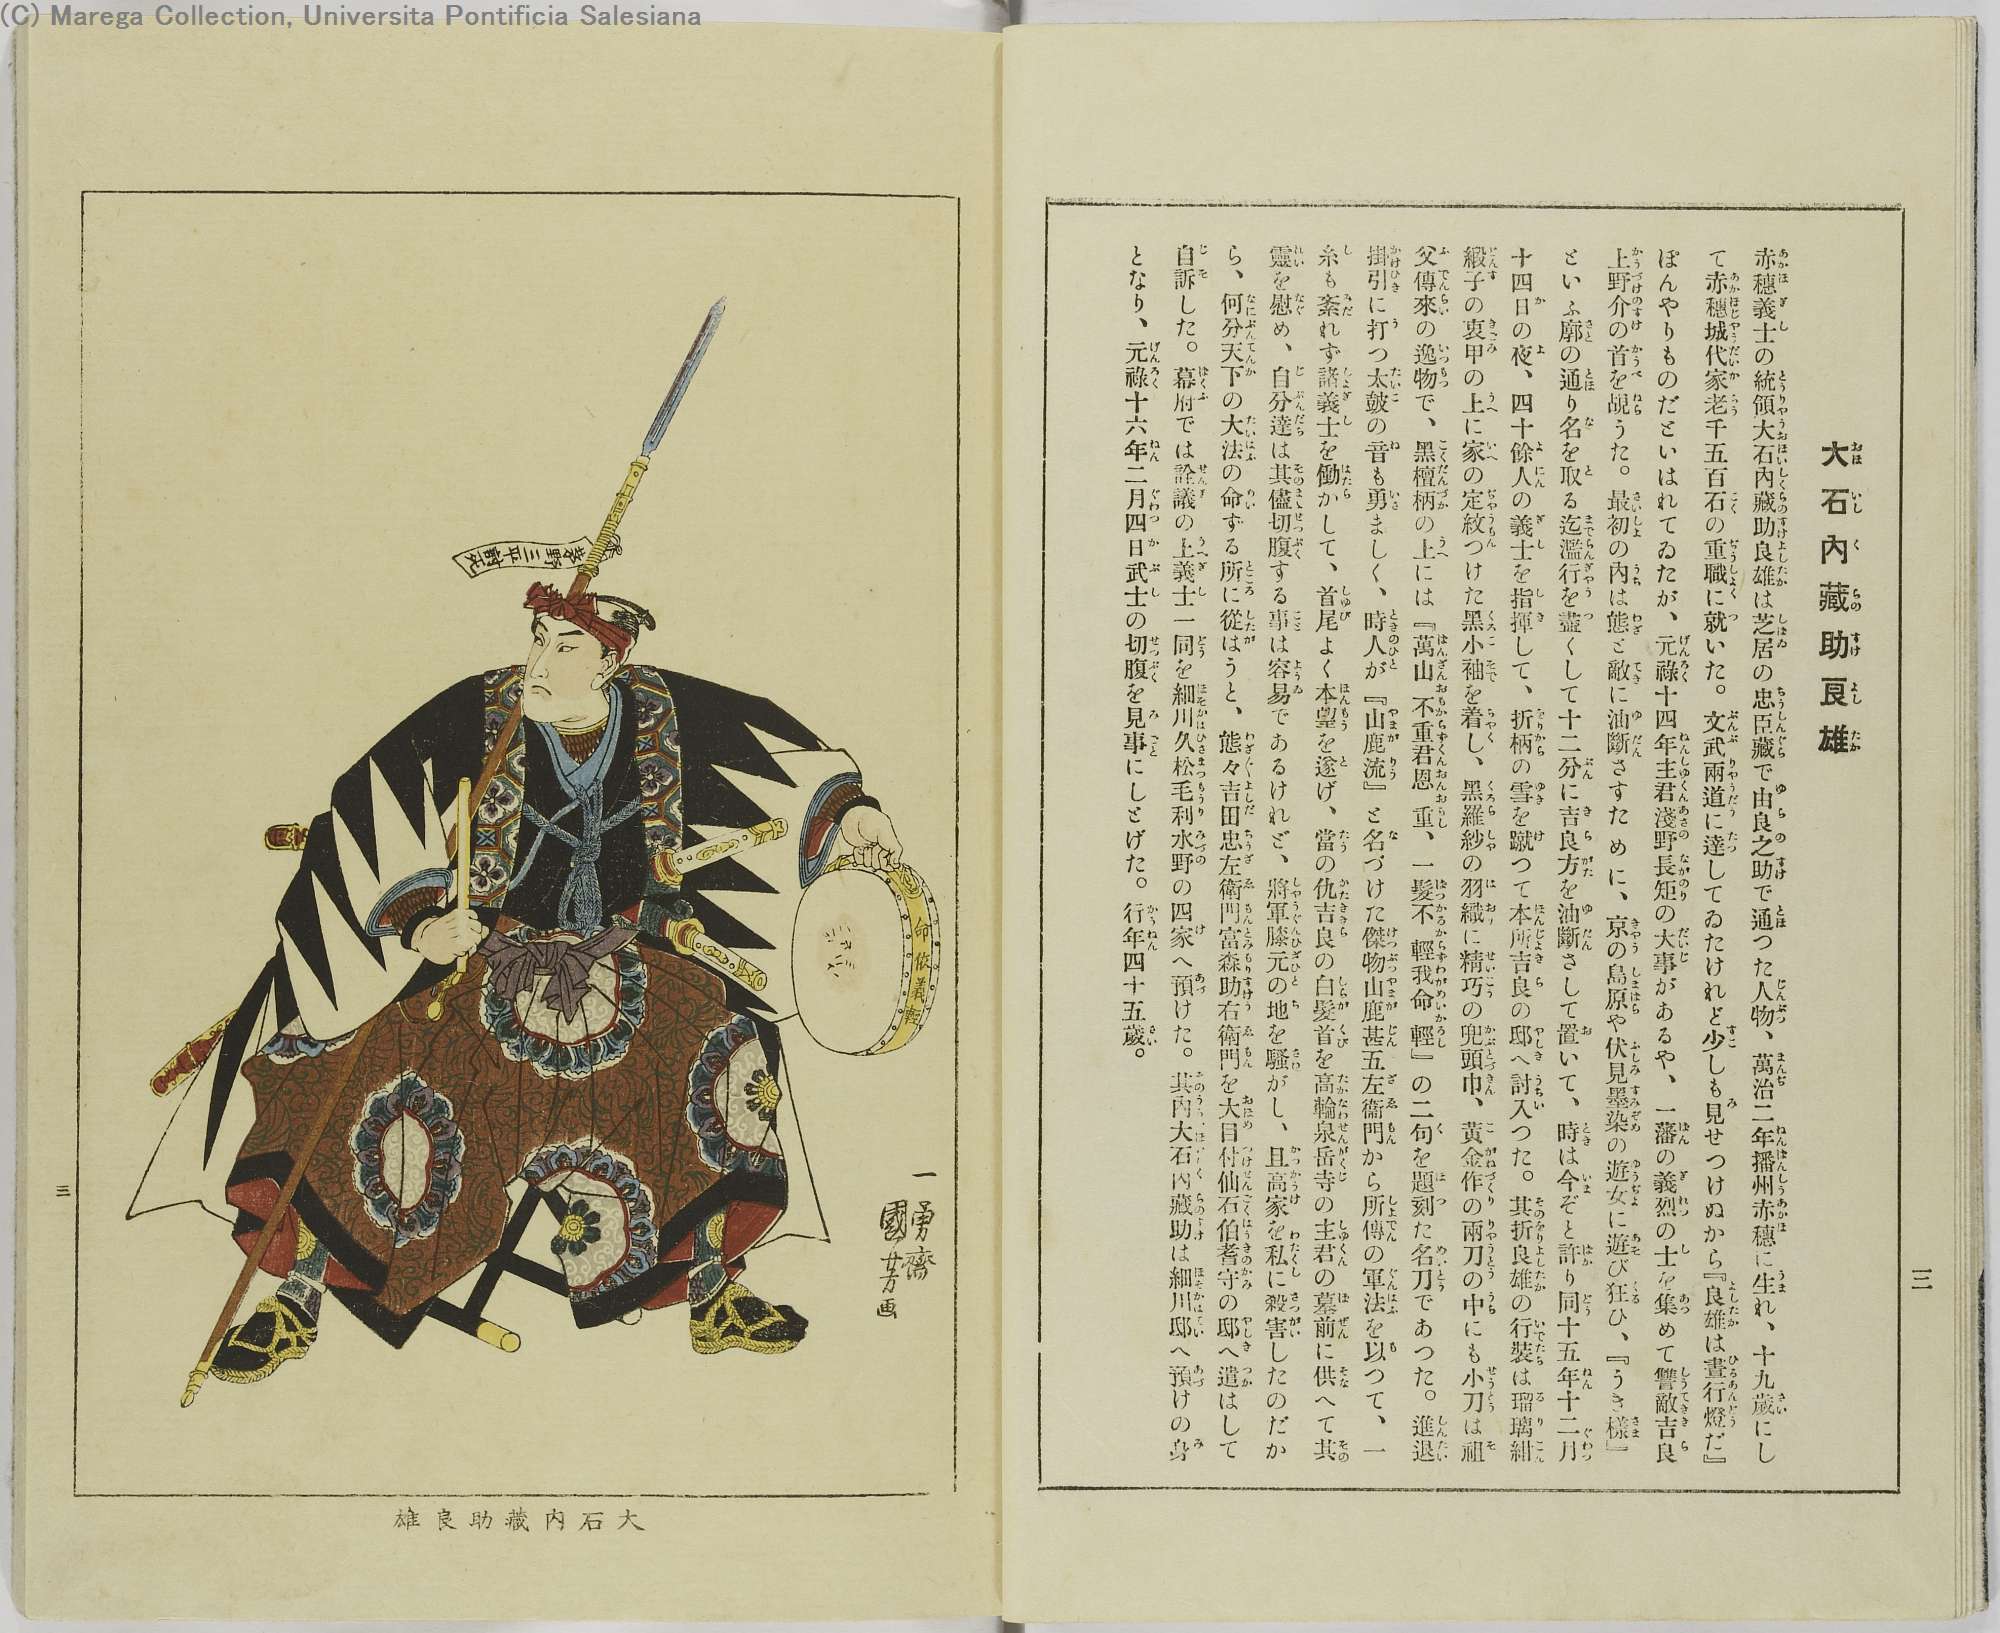 (C) Marega Collection, Universita Pontificia Salesiana
三
大石内藏助良雄
赤穗義士の統領大石内藏助良雄は芝居の忠臣藏で由良之助で通つた人物、萬治二年播州赤穗に生れ、十九歲にし
て赤穗城代家老千五百石の重職に就いた。文武兩道に達してゐたけれど少しも見せつけぬから『良雄は晝行燈だ』
ぼんやりものだといはれてゐたが、元祿十四年主君淺野長矩の大事があるや、一藩の義烈の士を集めて讐敵吉良
上野介の首を覘うた。最初の內は態と敵に油斷さすために、京の島原や伏見墨染の遊女に遊び狂ひ、『うき樣』
といふ廓の通り名を取る迄濫行を盡くして十二分に吉良方を油斷さして置いて、時は今ぞと許り同十五年十二月
十四日の夜、四十餘人の義士を指揮して、折柄の雪を蹴つて本所吉良の邸へ討入つた。其折良雄の行裝は瑠璃紺
緞子の衷甲の上に家の定紋つけた黑小袖を着し、黑羅紗の羽織に精巧の兜頭巾、黃金作の兩刀の中にも小刀は祖
父傳來の逸物で、黑檀柄の上には『萬山不重君恩重、一髮不輕我命輕』の二句を題刻た名刀であつた。進退
掛引に打つ太皷の音も勇ましく、時人が『山鹿流』と名づけた傑物山鹿甚五左衞門から所傳の軍法を以つて、一
糸も紊れず諸義士を働かして、首尾よく本望を遂げ、當の仇吉良の白髮首を高輪泉岳寺の主君の墓前に供へて其
靈を慰め、自分達は其儘切腹する事は容易であるけれど、將軍膝元の地を騷がし、且高家を私に殺害したのだか
ら、何分天下の大法の命ずる所に從はうと、態々吉田忠左衞門富森助右衞門を大目付仙石伯耆守の邸へ遣はして
自訴した。幕府では詮議の上義士一同を細川久松毛利水野の四家へ預けた。其內大石內藏助は細川邸へ預けの身
となり、元祿十六年二月四日武士の切腹を見事にしとげた。行年四十五歲。
萱野三平討死
命依義輕
一勇齋
國芳画
大石内藏助良雄
三